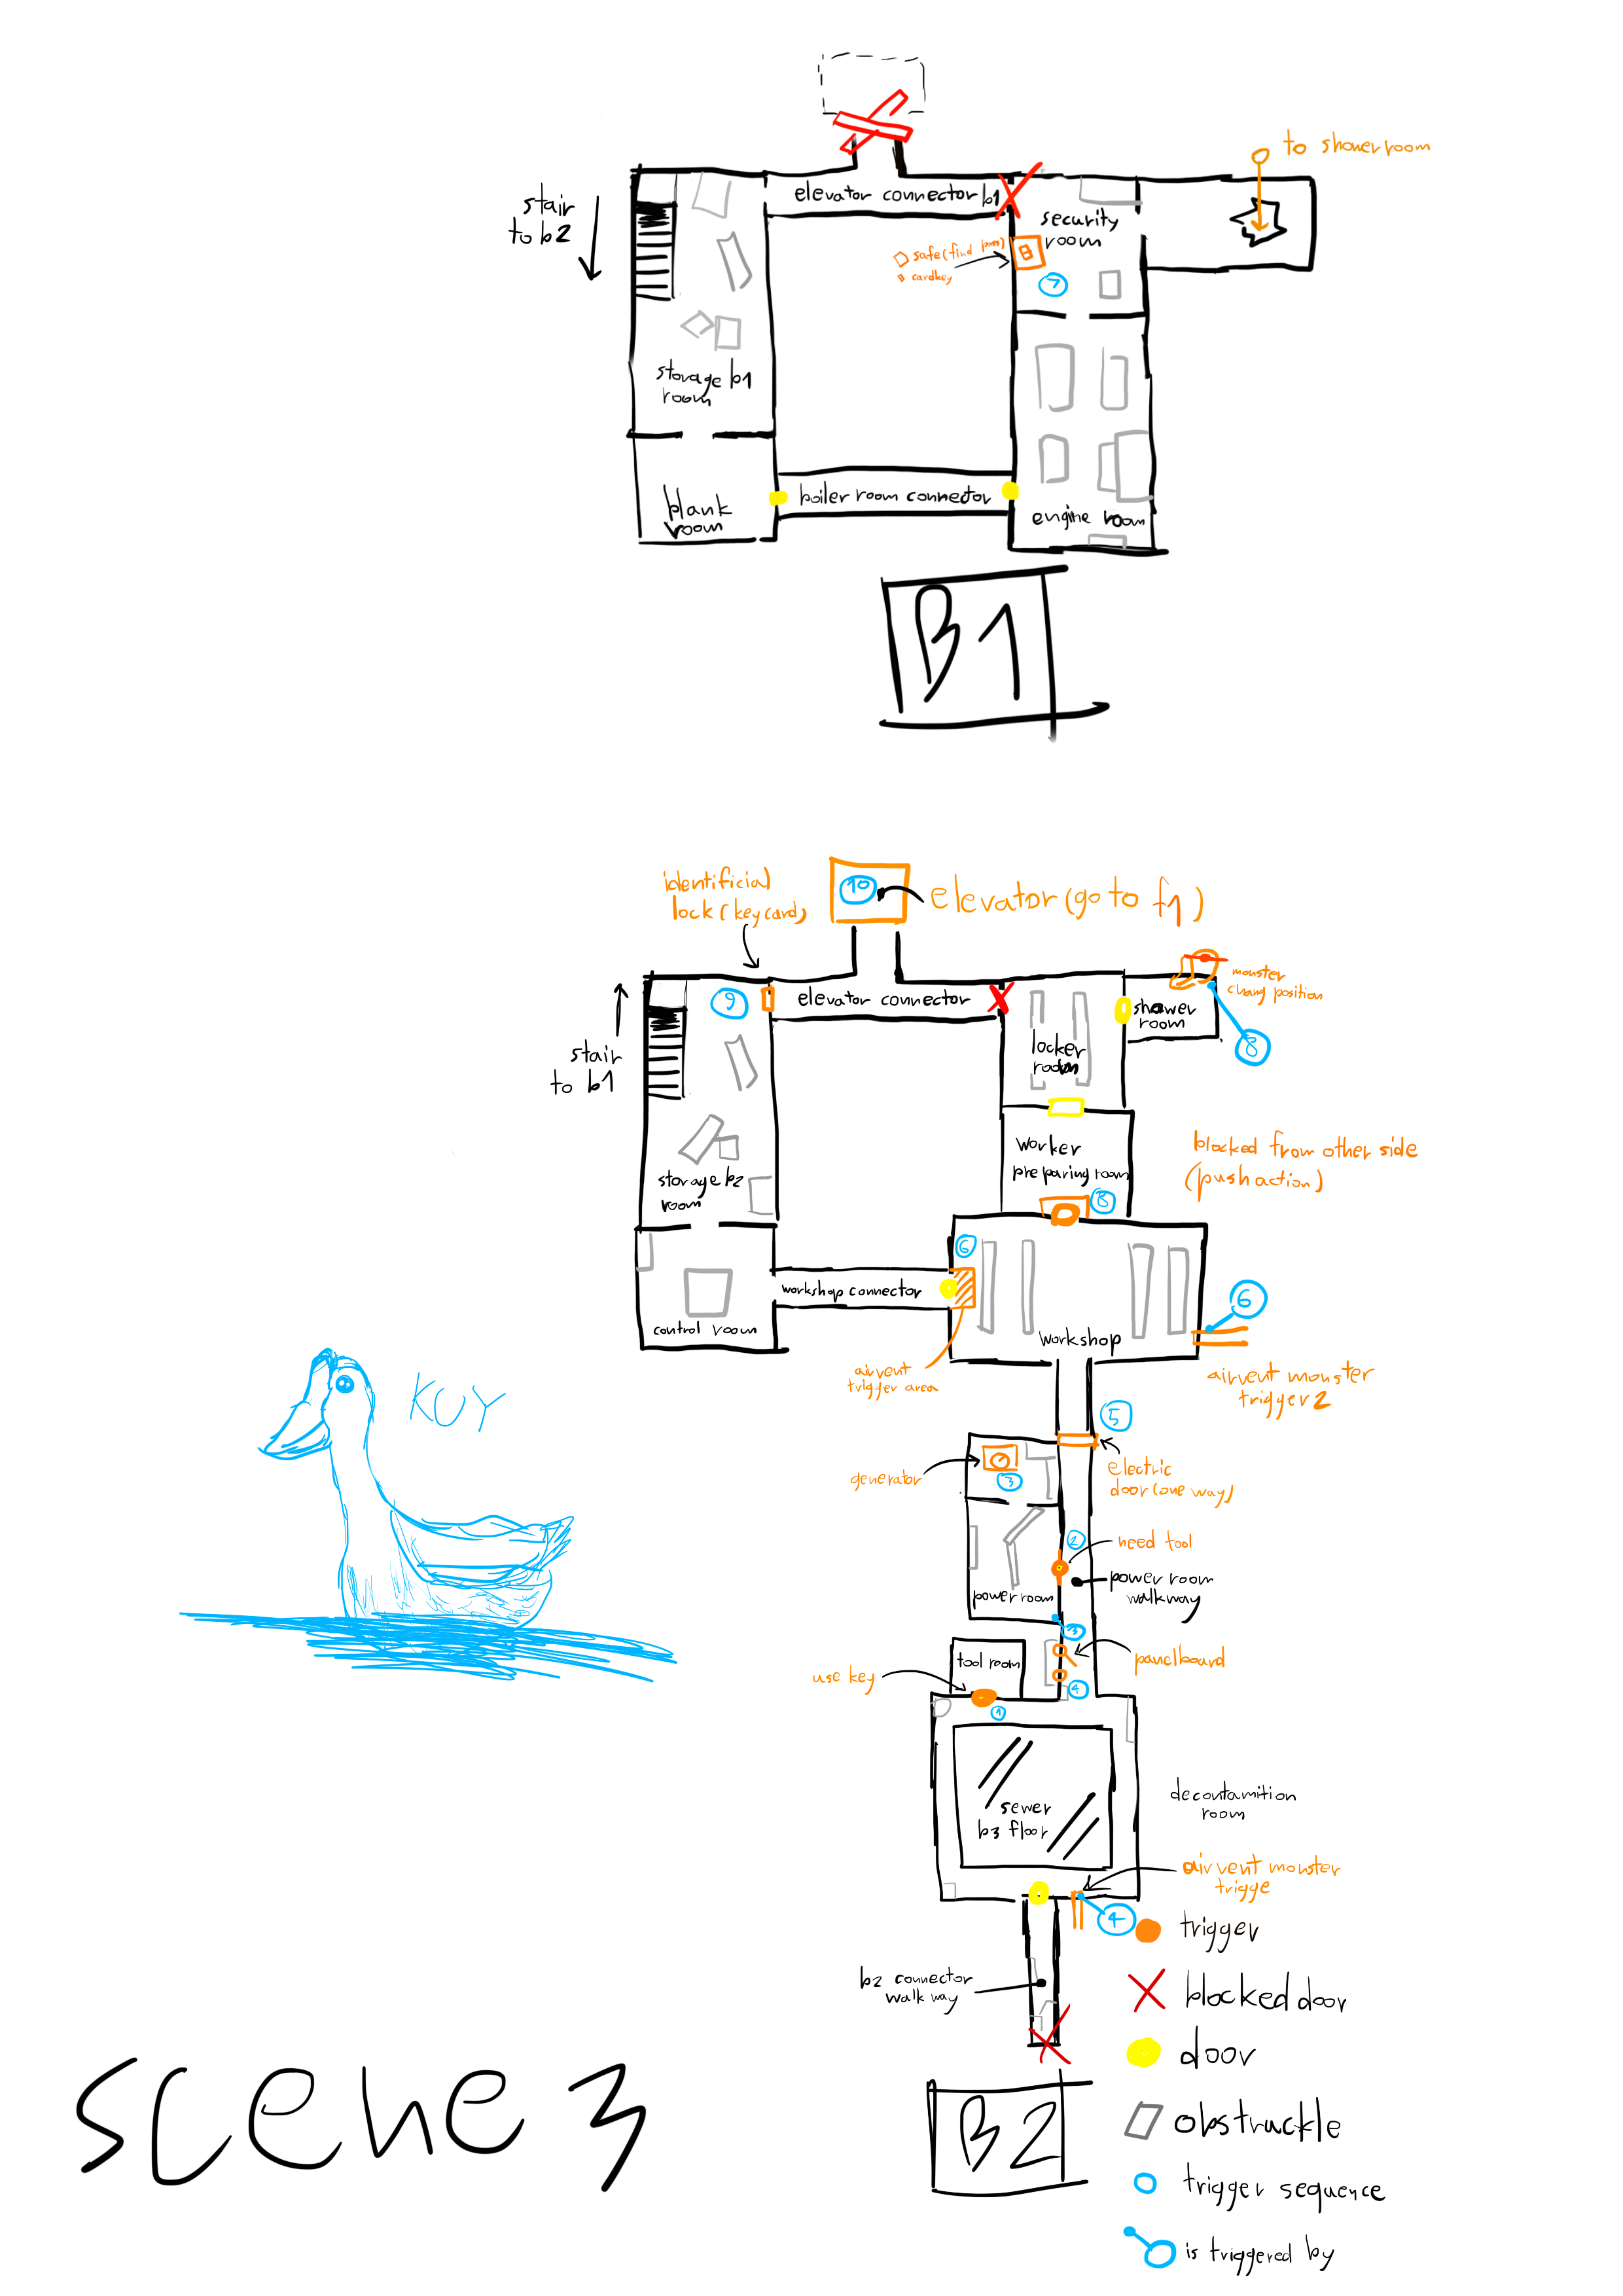 to shower room
stair
to b2
elevator connector b1
security
room
safe (find pass)
B cardkey
B
7
storage b1
room
blank
room
boiler room connector
engine room
B1
identificial
lock (key card)
10
elevator (go to f1)
9
elevator connector
monster
chang position
shower
room
8
stair
to b1
locker
room
worker
preparing room
blocked from other side
(push action)
8
storage b2
room
6
workshop connector
6
control room
workshop
airvent
trigger area
airvent monster
trigger 2
KUY
5
generator
3
electric
door (one way)
2
need tool
power room
walkway
power room
3
tool room
panelboard
use key
4
1
sewer
b3 floor
decontamition
room
airvent monster
trigge
4
trigger
b2 connector
walk way
blocked door
door
scene 3
B2
obstruckle
trigger sequence
is triggered by